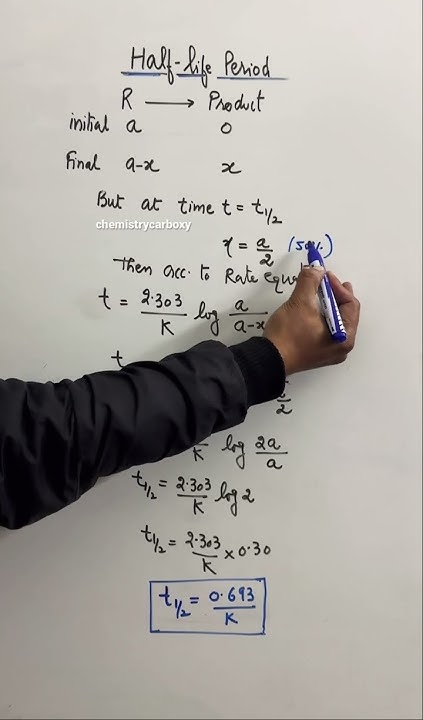 Half-life Period
R ⟶ Product
initial a 0
Final a-x x
But at time t = t1/2
chemistrycarboxy
x = a/2 (50%)
Then acc. to Rate
t = 2.303/K log a/a-x
t
/2
K log 2a/a
t1/2 = 2.303/K log 2
t1/2 = 2.303/K × 0.30
t1/2 = 0.693/K